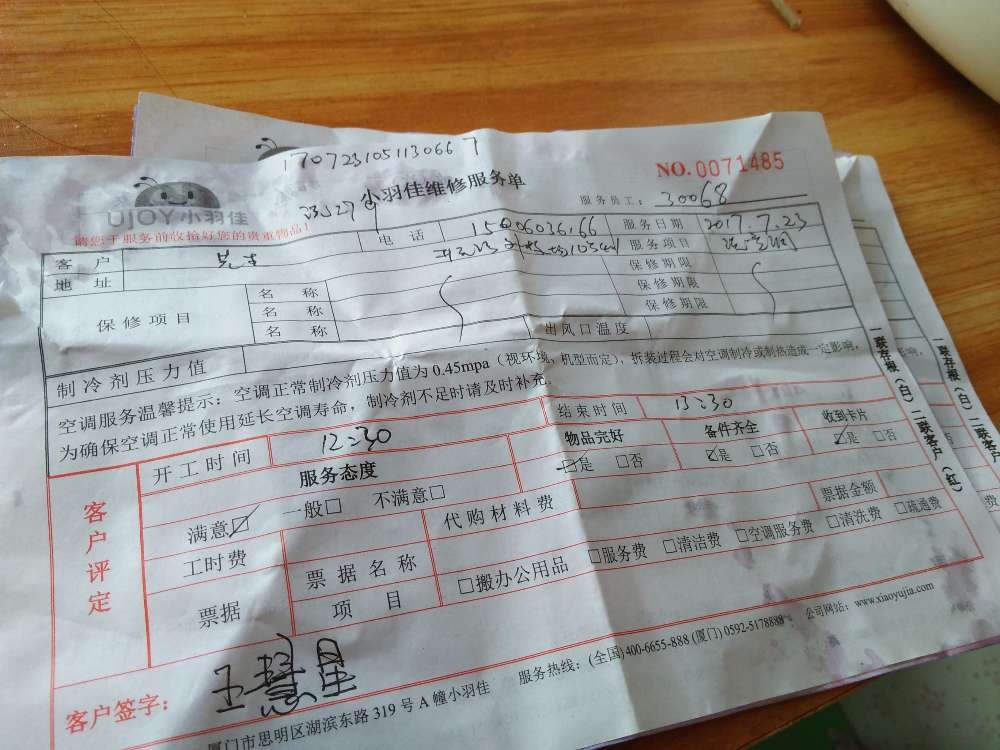 1707231051130667
NO.0071485
UJOY小羽佳
小羽佳维修服务单
服务员工：30068
请您于服务前收拾好您的贵重物品！
客户
电话
服务日期 2017.7.23
地址
服务项目
保修项目
名称
保修期限
名称
保修期限
名称
保修期限
制冷剂压力值
出风口温度
空调服务温馨提示：空调正常制冷剂压力值为0.45mpa（视环境、机型而定），拆装过程会对空调制冷或制热造成一定影响，
为确保空调正常使用延长空调寿命，制冷剂不足时请及时补充。
客户评定
开工时间 12:30
结束时间 13:30
服务态度
物品完好
备件齐全
收到卡片
满意☑ 一般□ 不满意□
☑是 □否
☑是 □否
☑是 □否
工时费
代购材料费
票据金额
票据
票据名称
项目
□搬办公用品 □服务费 □清洁费 □空调服务费 □清洗费 □疏通费
客户签字：王慧星
服务热线：(全国)400-6655-888 (厦门) 0592-5178888 公司网站：www.xiaoyujia.com
厦门市思明区湖滨东路319号A幢小羽佳
一联存根（白）二联客户（红）
一联存根（白）二联客户